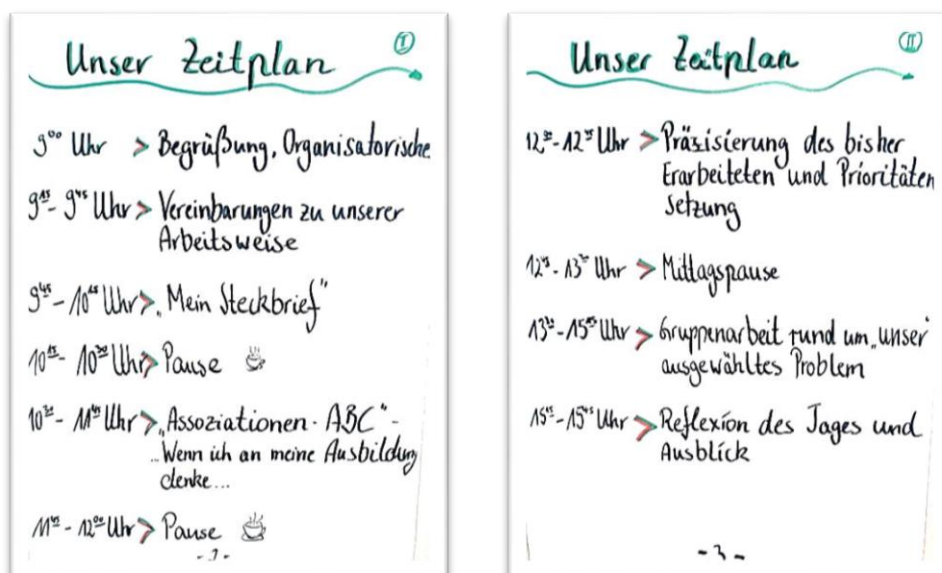 Unser Zeitplan I
9⁰⁰ Uhr > Begrüßung, Organisatorische
9¹⁵- 9⁴⁵ Uhr > Vereinbarungen zu unserer
Arbeitsweise
9⁴⁵ - 10¹⁵ Uhr > „Mein Steckbrief"
10¹⁵ - 10³⁰ Uhr > Pause
10³⁰ - 11⁴⁵ Uhr > „Assoziationen - ABC" -
...Wenn ich an meine Ausbildung
denke...
11⁴⁵ - 12⁰⁰ Uhr > Pause
Unser Zeitplan II
Uhr > Präzisierung des bisher
Erarbeiteten und Prioritäten
setzung
Uhr > Mittagspause
Uhr > Gruppenarbeit rund um „unser"
ausgewähltes Problem
Uhr > Reflexion des Tages und
Ausblick
- 3 -